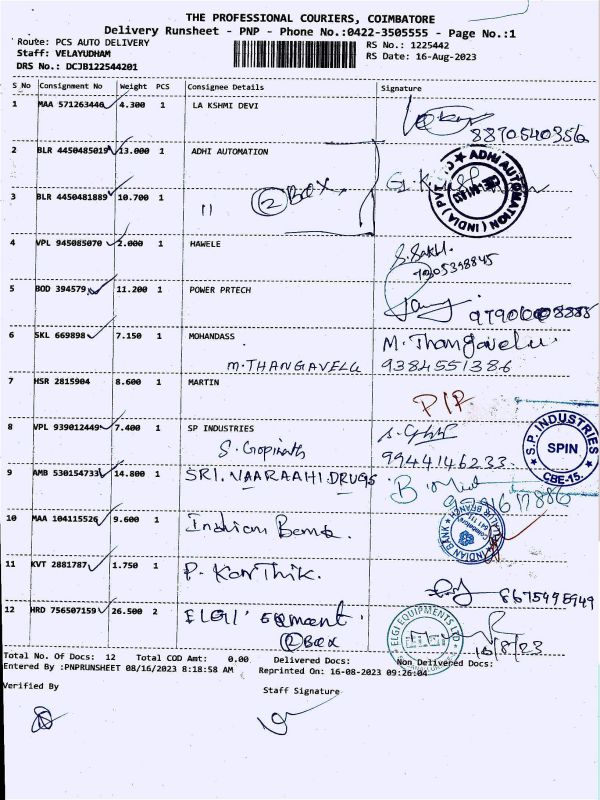 THE PROFESSIONAL COURIERS, COIMBATORE
Delivery Runsheet - PNP - Phone No.:0422-3505555 - Page No.:1
Route: PCS AUTO DELIVERY
Staff: VELAYUDHAM
DRS No.: DCJB122544201
RS No.: 1225442
RS Date: 16-Aug-2023
S_No Consignment No Weight PCS Consignee Details Signature
1 MAA 571263446 4.300 1 LA KSHMI DEVI
8870540356
2 BLR 4450485019 13.000 1 ADHI AUTOMATION
ADHI AUTOMATION (INDIA) PVT
3 BLR 4450481889 10.700 1 11 2 Box
4 VPL 945085070 2.000 1 HAWELE
7205398845
5 BOD 394579 11.200 1 POWER PRTECH
6 SKL 669898 7.150 1 MOHANDASS M. Thangavelu
M. THANGAVELU 9384551386
7 HSR 2815904 8.600 1 MARTIN
8 VPL 939012449 7.400 1 SP INDUSTRIES
S. Gopinath 9944146233
S.P. INDUSTRIES SPIN CBE-15.
9 AMB 530154733 14.800 1 SRI. VAARAAHI DRUGS
10 MAA 104115526 9.600 1 Indian Bank.
INDIAN BANK
11 KVT 2881787 1.750 1 P. Karthik.
8675498949
12 HRD 756507159 26.500 2 ELGI
2 Box
ELGI EQUIPMENTS LTD
ELGi
16/8/23
Total No. Of Docs: 12 Total COD Amt: 0.00 Delivered Docs: Non Delivered Docs:
Entered By :PNPRUNSHEET 08/16/2023 8:18:58 AM Reprinted On: 16-08-2023 09:26:04
Verified By
Staff Signature